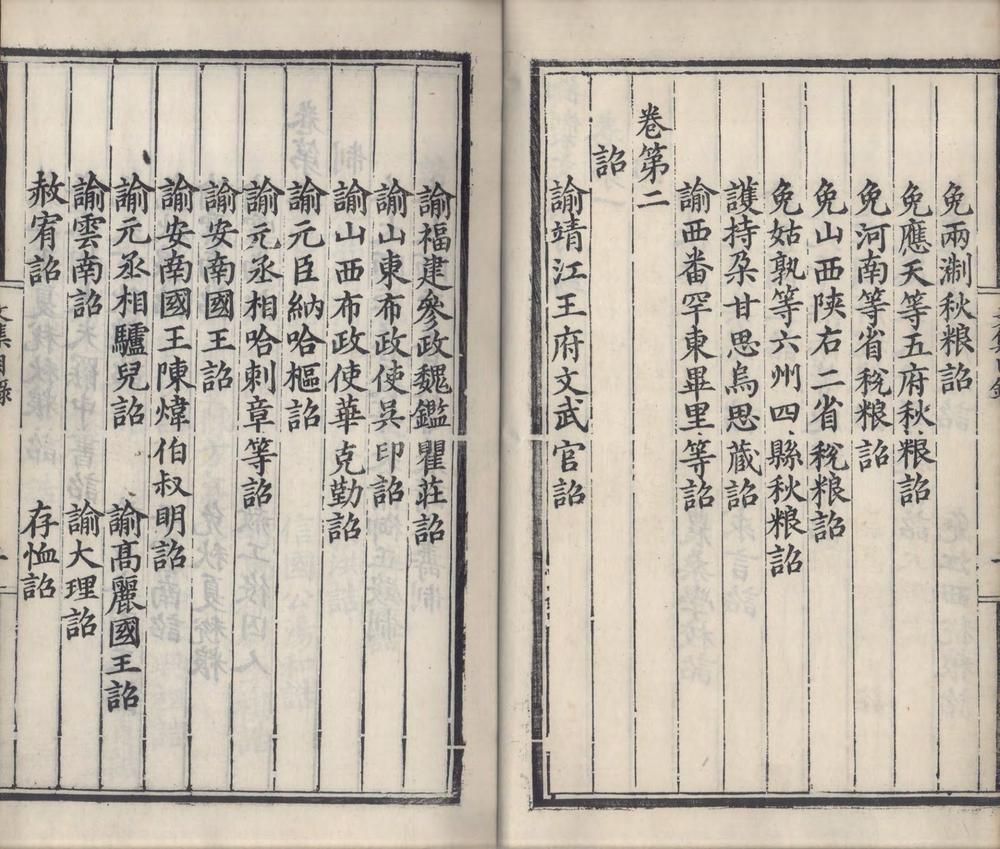 免兩淛秋粮詔
免應天等五府秋粮詔
免河南等省稅粮詔
免山西陝右二省稅粮詔
免姑孰等六州四縣秋粮詔
護持朶甘思烏思藏詔
諭西番罕東畢里等詔
卷第二
詔
諭靖江王府文武官詔
諭福建參政魏鑑瞿莊詔
諭山東布政使吳印詔
諭山西布政使華克勤詔
諭元臣納哈樞詔
諭元丞相哈剌章等詔
諭安南國王詔
諭安南國王陳煒伯叔明詔
諭元丞相驢兒詔　諭高麗國王詔
諭雲南詔　諭大理詔
赦宥詔　存恤詔
文集目錄